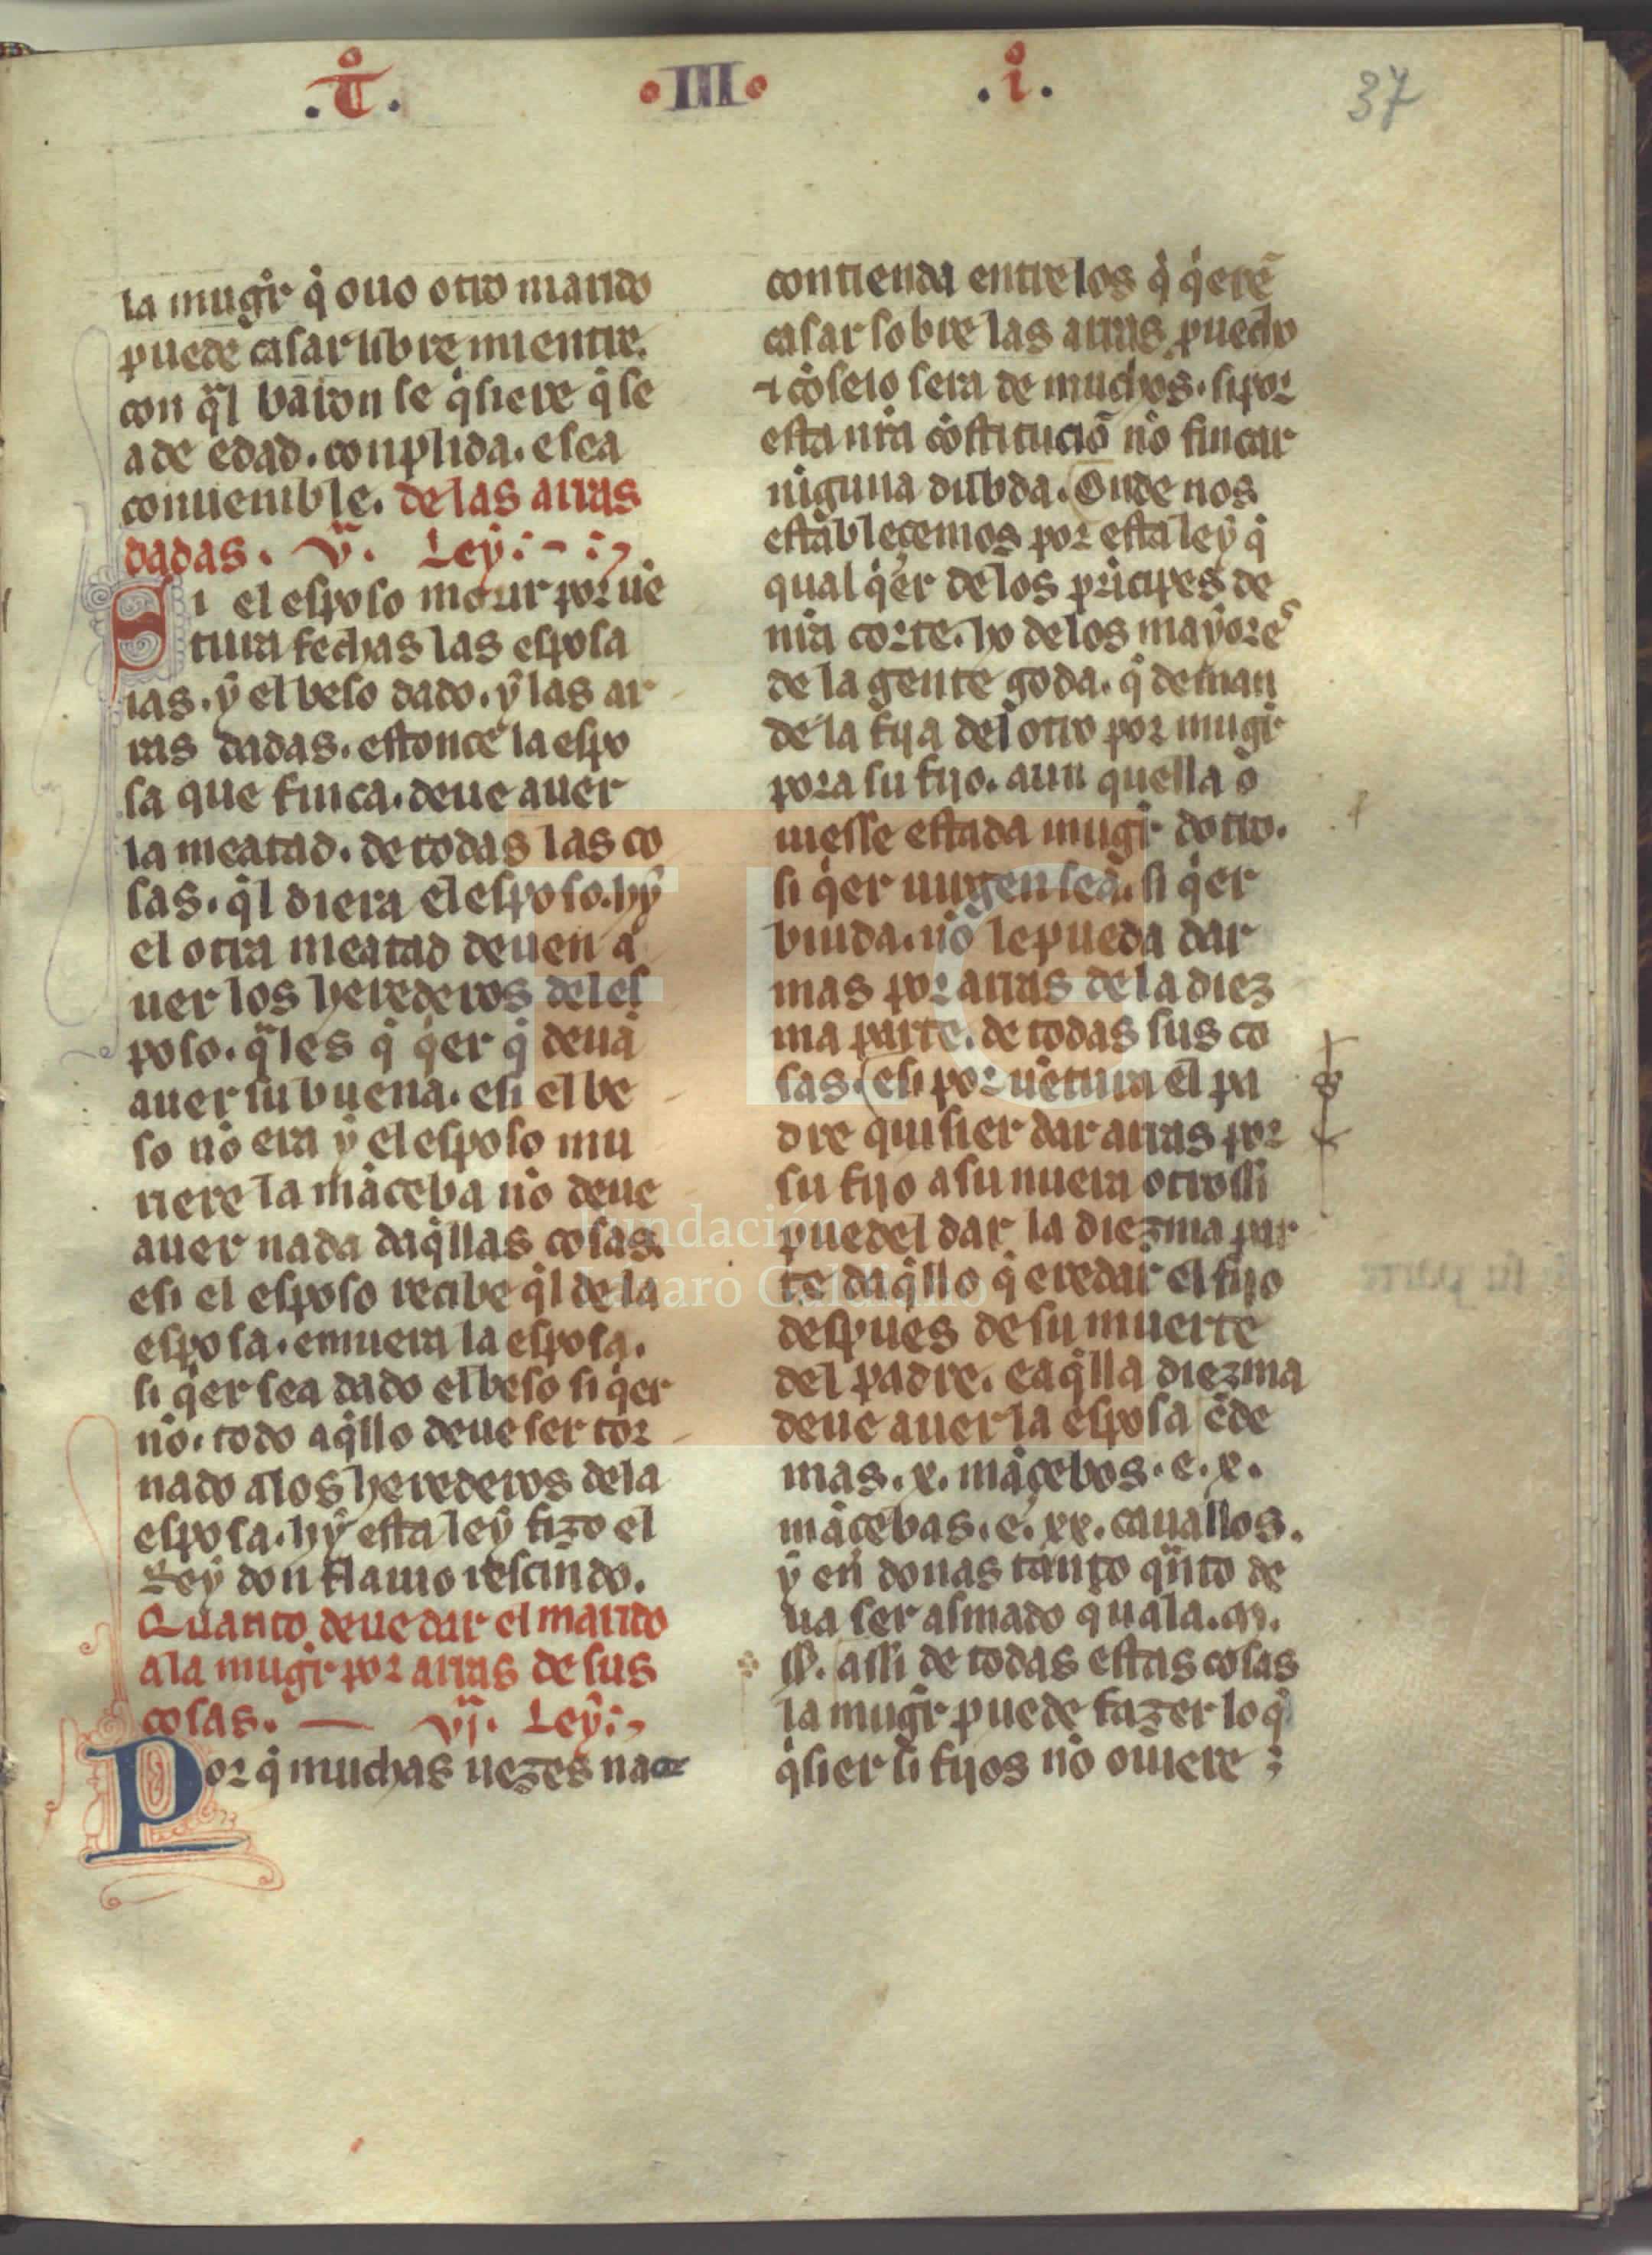 .T̊. •III• .i̊.
37
la mugr̊ q̊ ouo otro marido
puede casar libre mientre.
con q̃l baron se q̊siere q̊ se
a de edad. conplida. e sea
conuenible. de las arras
dadas. v̈. Ley:-:,
Si el esposo morir por uẽ
tura fechas las esposa
ias. ẏ el beso dado. ẏ las ar
ras dadas. estonce la espo
sa que finca. deue auer
la meatad. de todas las co
sas. q̊l diera el esposo. hẏ
el otra meatad deuen a
uer los herederos del es
poso. q̃les q̊ q̊er q̊ deuã
auer su buena. e si el be
so nõ era ẏ el esposo mu
riere la mãceba nõ deue
auer nada daq̊llas cosas.
e si el esposo recibe q̊l de la
esposa. e muera la esposa.
si q̊er sea dado el beso si q̊er
nõ. todo aq̊llo deue ser tor
nado a los herederos dela
esposa. hẏ esta leẏ fizo el
Reẏ don flauio rescindo.
Quanto deue dar el marido
a la mugr̊ por arras de sus
cosas. — vj̈. Ley:,
Por q̊ muchas uezes nace
contienda entre los q̊ q̊erẽ
casar sobre las arras. puedo
⁊ cõseio sera de muchos. si por
esta nr̃a cõstituciõ nõ fincar
niguna dubda. Onde nos
establecemos por esta leẏ q̊
qual q̊er de los prĩcipes de
nr̃a corte. ho de los maẏores
de la gente goda. q̊ deman
de la fija del otro por mugr̊
pora su fijo. aun quella o
uiesse estada mugr̊ dotro.
si q̊er uirgen sea. si q̊er
biuda. nõ le pueda dar
mas por arras de la diez
ma parte. de todas sus co
sas. e si por uẽtura el pa
dre quisier dar arras por
su fijo a su nuera otrossi
puedel dar la diezma par
te daq̊llo q̊ eredar el fijo
despues de su muerte
del padre. e aq̊lla diezma
deue auer la esposa e de
mas. x. mãcebos. e. x.
mãcebas. e. xx. cauallos.
ẏ en donas tanto q̃nto de
ua ser asmado quala. m̃.
ss̃. assi de todas estas cosas
la mugr̊ puede fazer lo q̊
q̊sier si fijos nõ ouiere ;
Fundación
Lázaro Galdiano